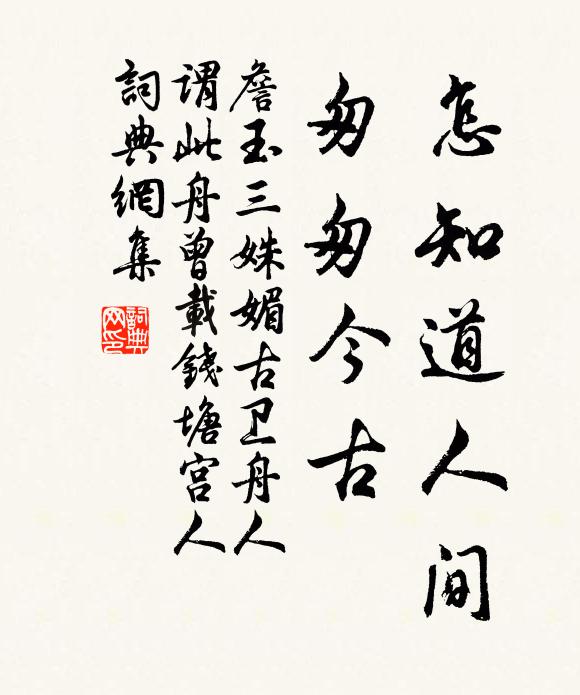 怎知道人间
匆匆今古
詹玉三姝媚古卫舟人
谓此舟曾載錢塘宫人
詞典網集
詞典网印